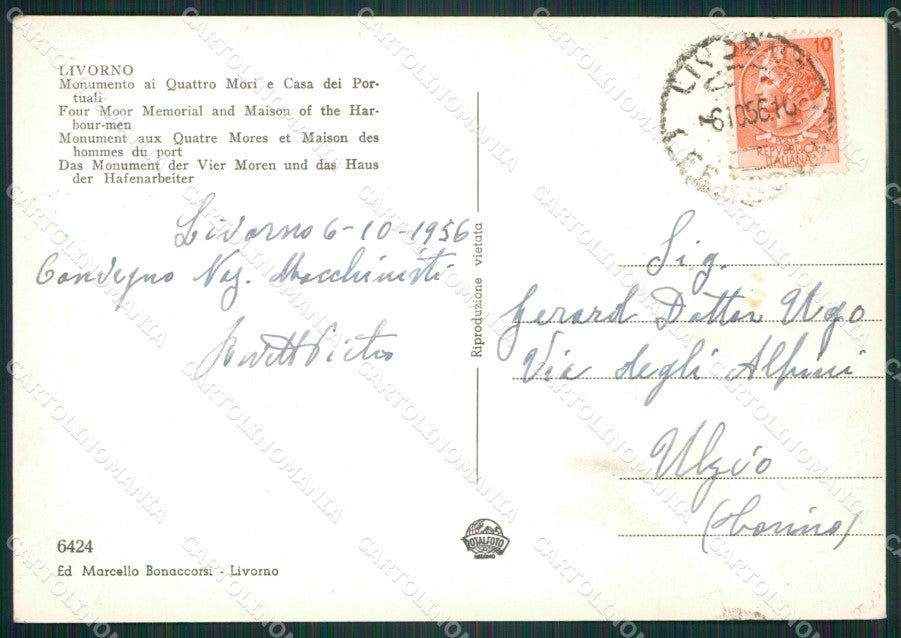 LIVORNO
Monumento ai Quattro Mori e Casa dei Por-
tuali
Four Moor Memorial and Maison of the Har-
bour-men
Monument aux Quatre Mores et Maison des
hommes du port
Das Monument der Vier Moren und das Haus
der Hafenarbeiter
Livorno 6-10-1956
Convegno Naz. Macchinisti
6424
Ed Marcello Bonaccorsi - Livorno
Riproduzione vietata
ROTALFOTO
MILANO
10
POSTE
REPVBBLICA
ITALIANA
LIVORNO
Sig.
Gerard Dottor Ugo
Via degli Alpini
Ulzio
(Torino)
CARTOLINOMANIA